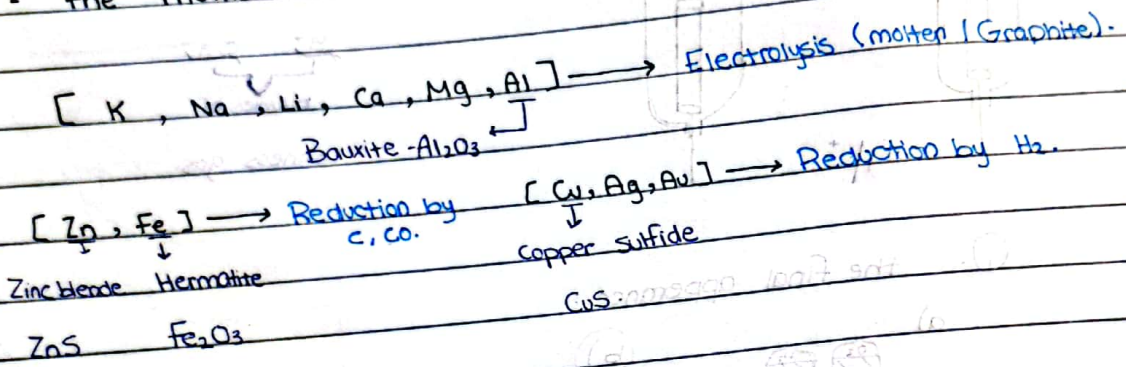 the
[ K, Na, Li, Ca, Mg, Al ] → Electrolysis (molten / Graphite).
Bauxite - Al₂O₃
[ Zn, Fe ] → Reduction by C, CO.
[ Cu, Ag, Au ] → Reduction by H₂.
Zinc blende Hermatite
Copper sulfide
ZnS Fe₂O₃
CuS.